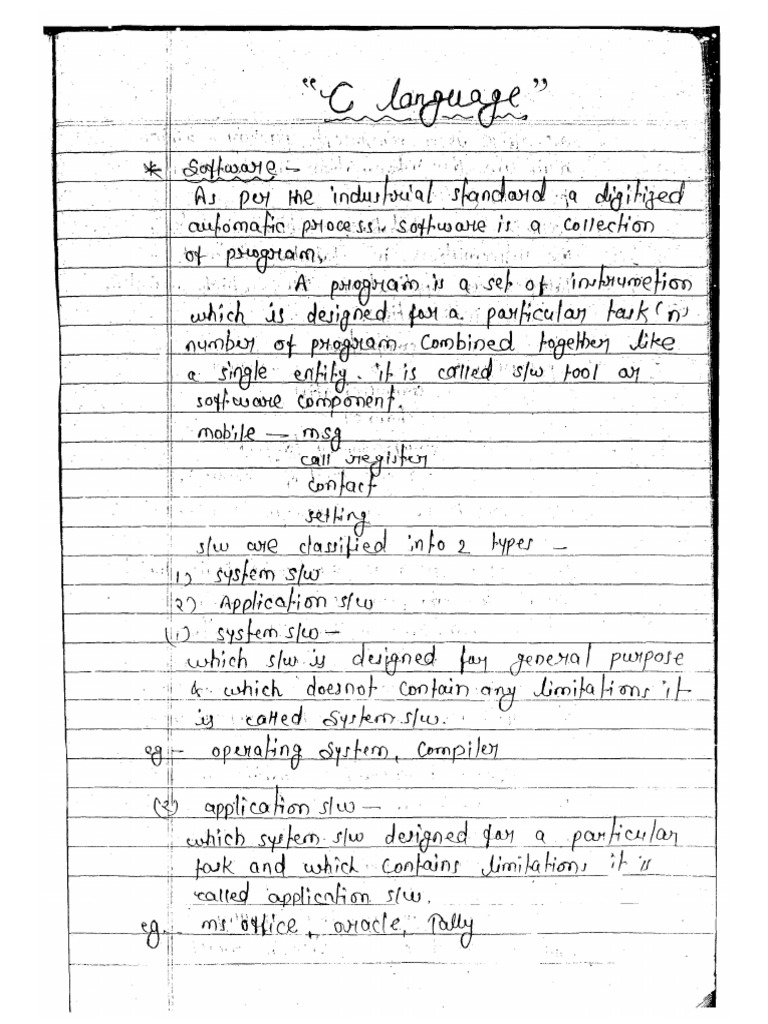 "C language"
* Software -
As per the industrial standard a digitized
automatic process. software is a collection
of program.
A program is a set of instrumetion
which is designed for a particular task 'n'
number of program combined together like
a single entity. it is called s/w tool or
software component.
mobile - msg
call register
contact
setting
s/w are classified into 2 types -
1) system s/w
2) Application s/w
(1) system s/w -
which s/w is designed for general purpose
& which doesnot contain any limitations it
is called System s/w.
eg - operating System, Compiler
(2) application s/w -
which system s/w designed for a particular
task and which contains limitations it is
called application s/w.
eg. ms office, oracle, Tally